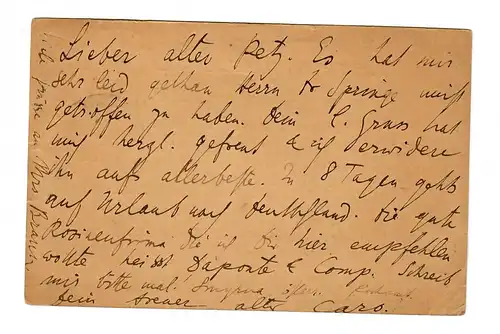 Lieber alter Petz. Es hat mir
sehr leid gethan Herrn Dr Springe nicht
getroffen zu haben. Dein l. Gruss hat
mich herzl. gefreut & ich erwidere
ihn aufs allerbeste. In 8 Tagen gehts
auf Urlaub nach Deutschland. Die gute
Rosinenfirma die ich Dir hier empfehlen
wollte heisst Daponte & Comp. Schreib
mir bitte mal. Smyrna
Dein treuer alter Caro.
Viele Grüsse an Mrs Braun